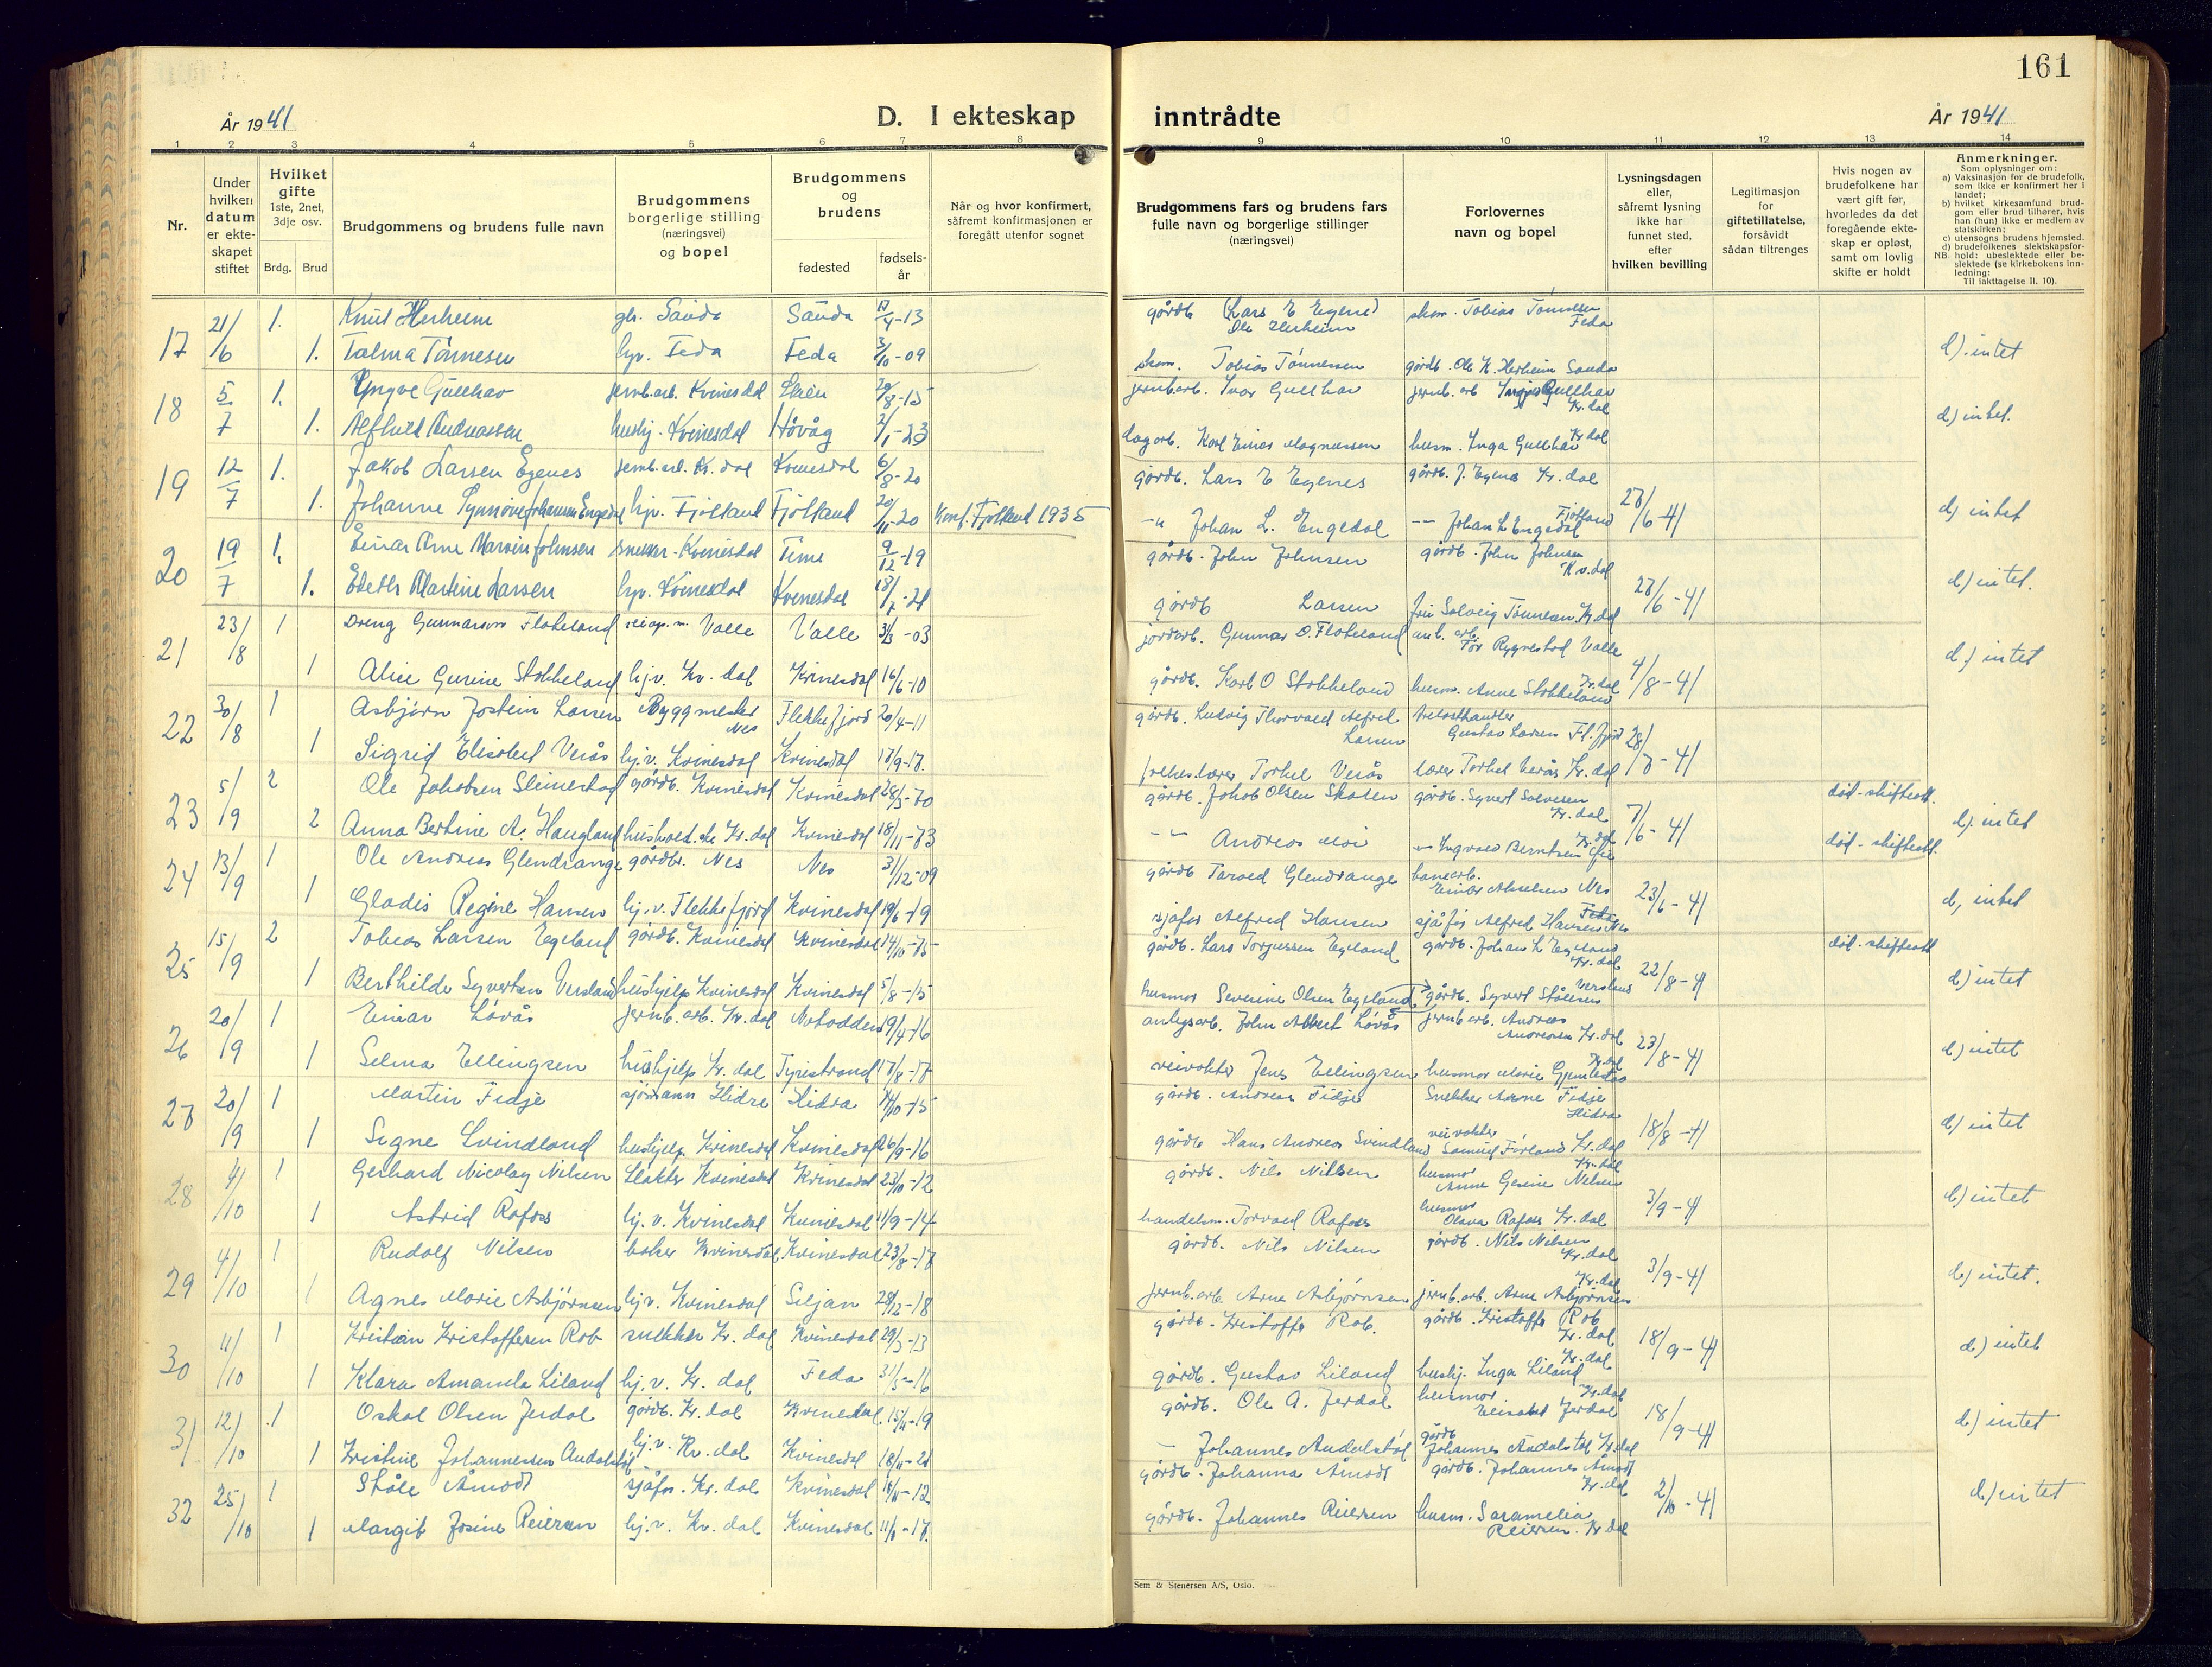 161
År 1941
D. I ekteskap inntrådte
År 1941
1 2 3 4 5 6 7 8 9 10 11 12 13 14
Nr.
Under hvilken datum er ekteskapet stiftet
Hvilket gifte 1ste, 2net, 3dje osv.
Brdg. Brud
Brudgommens og brudens fulle navn
Brudgommens borgerlige stilling (næringsvei) og bopel
Brudgommens og brudens
fødested
fødselsår
Når og hvor konfirmert, såfremt konfirmasjonen er foregått utenfor sognet
Brudgommens fars og brudens fars fulle navn og borgerlige stillinger (næringsvei)
Forlovernes navn og bopel
Lysningsdagen eller, såfremt lysning ikke har funnet sted, efter hvilken bevilling
Legitimasjon for giftetillatelse, forsåvidt sådan tiltrenges
Hvis nogen av brudefolkene har vært gift før, hvorledes da det foregående ekteskap er opløst, samt om lovlig skifte er holdt
Anmerkninger.
Som oplysninger om:
a) Vaksinasjon for de brudefolk, som ikke er konfirmert her i landet;
b) hvilket kirkesamfund brudgom eller brud tilhører, hvis han (hun) ikke er medlem av statskirken;
c) utensogns brudens hjemsted.
d) brudefolkenes slektskapsforhold: ubeslektede eller beslektede (se kirkebokens innledning:
NB.
Til iakttagelse II. 10).
17 21/6 1. Knut Herheim Sauda Sauda 17/4-13 gårdb (Lars E Egenes) Ole Herheim skom. Tobias Tønnessen Feda
1. Talma Tønnesen hjv. Feda Feda 3/10-09 skom. Tobias Tønnessen gårdb. Ole K. Herheim Sauda d) intet
18 5/7 1. Yngve Gullhav jernb.arb. Kvinesdal Skien 20/8-15 jernb.arb. Ivar Gullhav jernb. arb Gullhav Kv.dal
1. Alfhild Andreassen hushj. Kvinesdal Høvåg 2/1-23 dagarb. Karl Einar Magnussen husm. Inga Gullhav Kv.dal d) intet.
19 12/7 1. Jakob Larsen Egenes jernb.arb. Kv. dal Kvinesdal 6/8-20 gårdb. Lars E Egenes gårdb. J. Egenes Kv. dal
1. Johanne Synnøve Johansen Engedal hjv. Fjotland Fjotland 20/11-20 Konf. Fjotland 1935 -"- Johan L. Engedal -- Johan L Engedal Fjotland 28/6-41 d) intet
20 19/7 1. Einar Arne Marvin Johnsen snekker Kvinesdal Time 9/12-19 gårdb. John Johnsen gårdb. John Johnsen Kv.dal
1. Edeth Martine Larsen hjv. Kvinesdal Kvinesdal gårdb Larsen fru Solveig Tønnesen Kv.dal 28/6-41 d) intet.
21 23/8 1 Dreng Gunnarson Flateland Valle Valle 3/3-03 jordarb. Gunnar O. Flateland anl. arb. Tor Rygnestad Valle
1 Alice Gurine Stokkeland hj.v. Kv. dal Kvinesdal 16/6-10 gårdb. Karl O Stokkeland husm. Anne Stokkeland Kv.dal 4/8-41 d) intet
22 30/8 1 Asbjørn Jostein Larsen Byggmester Nes Flekkefjord 20/4-11 gårdb. Ludvig Thorvald Alfred Larsen trelasthandler Gustav Larsen Fl.fjord
1 Sigrid Elisabet Verås hj.v. Kvinesdal Kvinesdal 17/9-17. folkes.lærer Torkel Verås lærer Torkel Verås Kv. dal 28/7-41
23 5/9 2 Ole Jakobsen Slimestad gårdb. Kvinesdal Kvinesdal 28/3-70 gårdb. Jakob Olsen Skolen gårdb. Syvert Salvesen Kv. dal død - skifteatt.
2 Anna Bertine A. Haugland Kv. dal Kvinesdal 18/11-73 -"- Andreas Moi Ingvald Berntsen Kv. dal 7/6-41 død - skifteatt. d) intet
24 13/9 1 Ole Andreas Glendrange gårdbr. Nes Nes 31/12-09 gårdb Tarald Glendrange banearb. Einar Akselsen Nes
1 Gladis Regine Hansen hj.v. Flekkefjord Kvinesdal 19/6-19 sjåfør Alfred Hansen sjåfør Alfred Hansen Nes 23/6-41 d) intet
25 15/9 2 Tobias Larsen Egeland gårdb. Kvinesdal Kvinesdal 14/10-75 gårdb. Lars Torjussen Egeland gårdb. Johan L Egeland Kv. dal død - skifteatt
1 Berthilde Syvertsen Versland hushjelp Kvinesdal Kvinesdal 5/8-15 husmor Severine Olsen Egeland gårdb. Syvert Stålesen Versland 22/8-41 d) intet
26 20/9 1 Einar Løvås jernb. arb. Kv. dal Notodden 19/4-16 anlegsarb. John Albert Løvås jernb arb. Andreas Andreassen Kv. dal
1 Selma Ellingsen hushjelp Kv. dal Tyristrand 17/8-17 veivokter Jens Ellingsen husmor Marie Gjemlestad Kv.dal 23/8-41 d) intet
27 20/9 1 Martin Fidje sjømann Hidra Hidra 14/10-15 gårdb. Andreas Fidje Snekker Arne Fidje Hidra
1 Signe Svindland hushjelp Kvinesdal Kvinesdal 26/9-16 gårdb Hans Andreas Svindland veivokter Samuel Førland Kv. dal 18/8-41 d) intet
28 4/10 1 Gerhard Nicolay Nilsen Slakter Kvinesdal Kvinesdal 23/10-12 gårdb. Nils Nilsen husmor Anne Gesine Nilsen Kv. dal
1 Astrid Rafoss hj. v. Kvinesdal Kvinesdal 11/9-14 handelsm. Torvald Rafoss husmor Olava Rafoss Kv. dal 3/9-41 d) intet
29 4/10 1 Rudolf Nilsen baker Kvinesdal Kvinesdal 23/8-17 gårdb. Nils Nilsen gårdb. Nils Nilsen Kv. dal
1 Agnes Marie Asbjørnsen hjv. Kvinesdal Siljan 28/12-18 jernb. arb. Arne Asbjørnsen jernb. arb. Arne Asbjørnsen Kv.dal 3/9-41 d) intet.
30 11/10 1 Kristian Kristoffersen Rob snekker Kv. dal Kvinesdal 29/3-13 gårdb. Kristoffer Rob. gårdb. Kristoffer Rob Kv. dal
1 Klara Amanda Liland hj. v. Kv. dal Feda 31/5-16 gårdb. Gustav Liland hushj. Inga Liland Kv. dal 18/9-41 d) intet
31 12/10 1 Oskal Olsen Jerdal gårdb. Kv. dal Kvinesdal 15/11-19 gårdb. Ole A. Jerdal husmor Elisabet Jerdal Kv. dal
1 Kristine Johannessen Audalstøl hj.v. Kv. dal Kvinesdal 18/11-21 - Johannes Audalstøl gårdb Johannes Audalstøl Kv.dal 18/9-41 d) intet
32 25/10 1 Ståle Åmodt sjåfør. Kv. dal Kvinesdal 18/11-12 gårdb. Johanna Åmodt gårdb. Johannes Åmodt Kv. dal
1 Margit Josine Reiersen hj. v. Kv. dal Kvinesdal gårdb. Johannes Reiersen husm. Saramelia Reiersen Kv dal 2/10-41 d) intet
Sem & Stenersen A/S, Oslo.